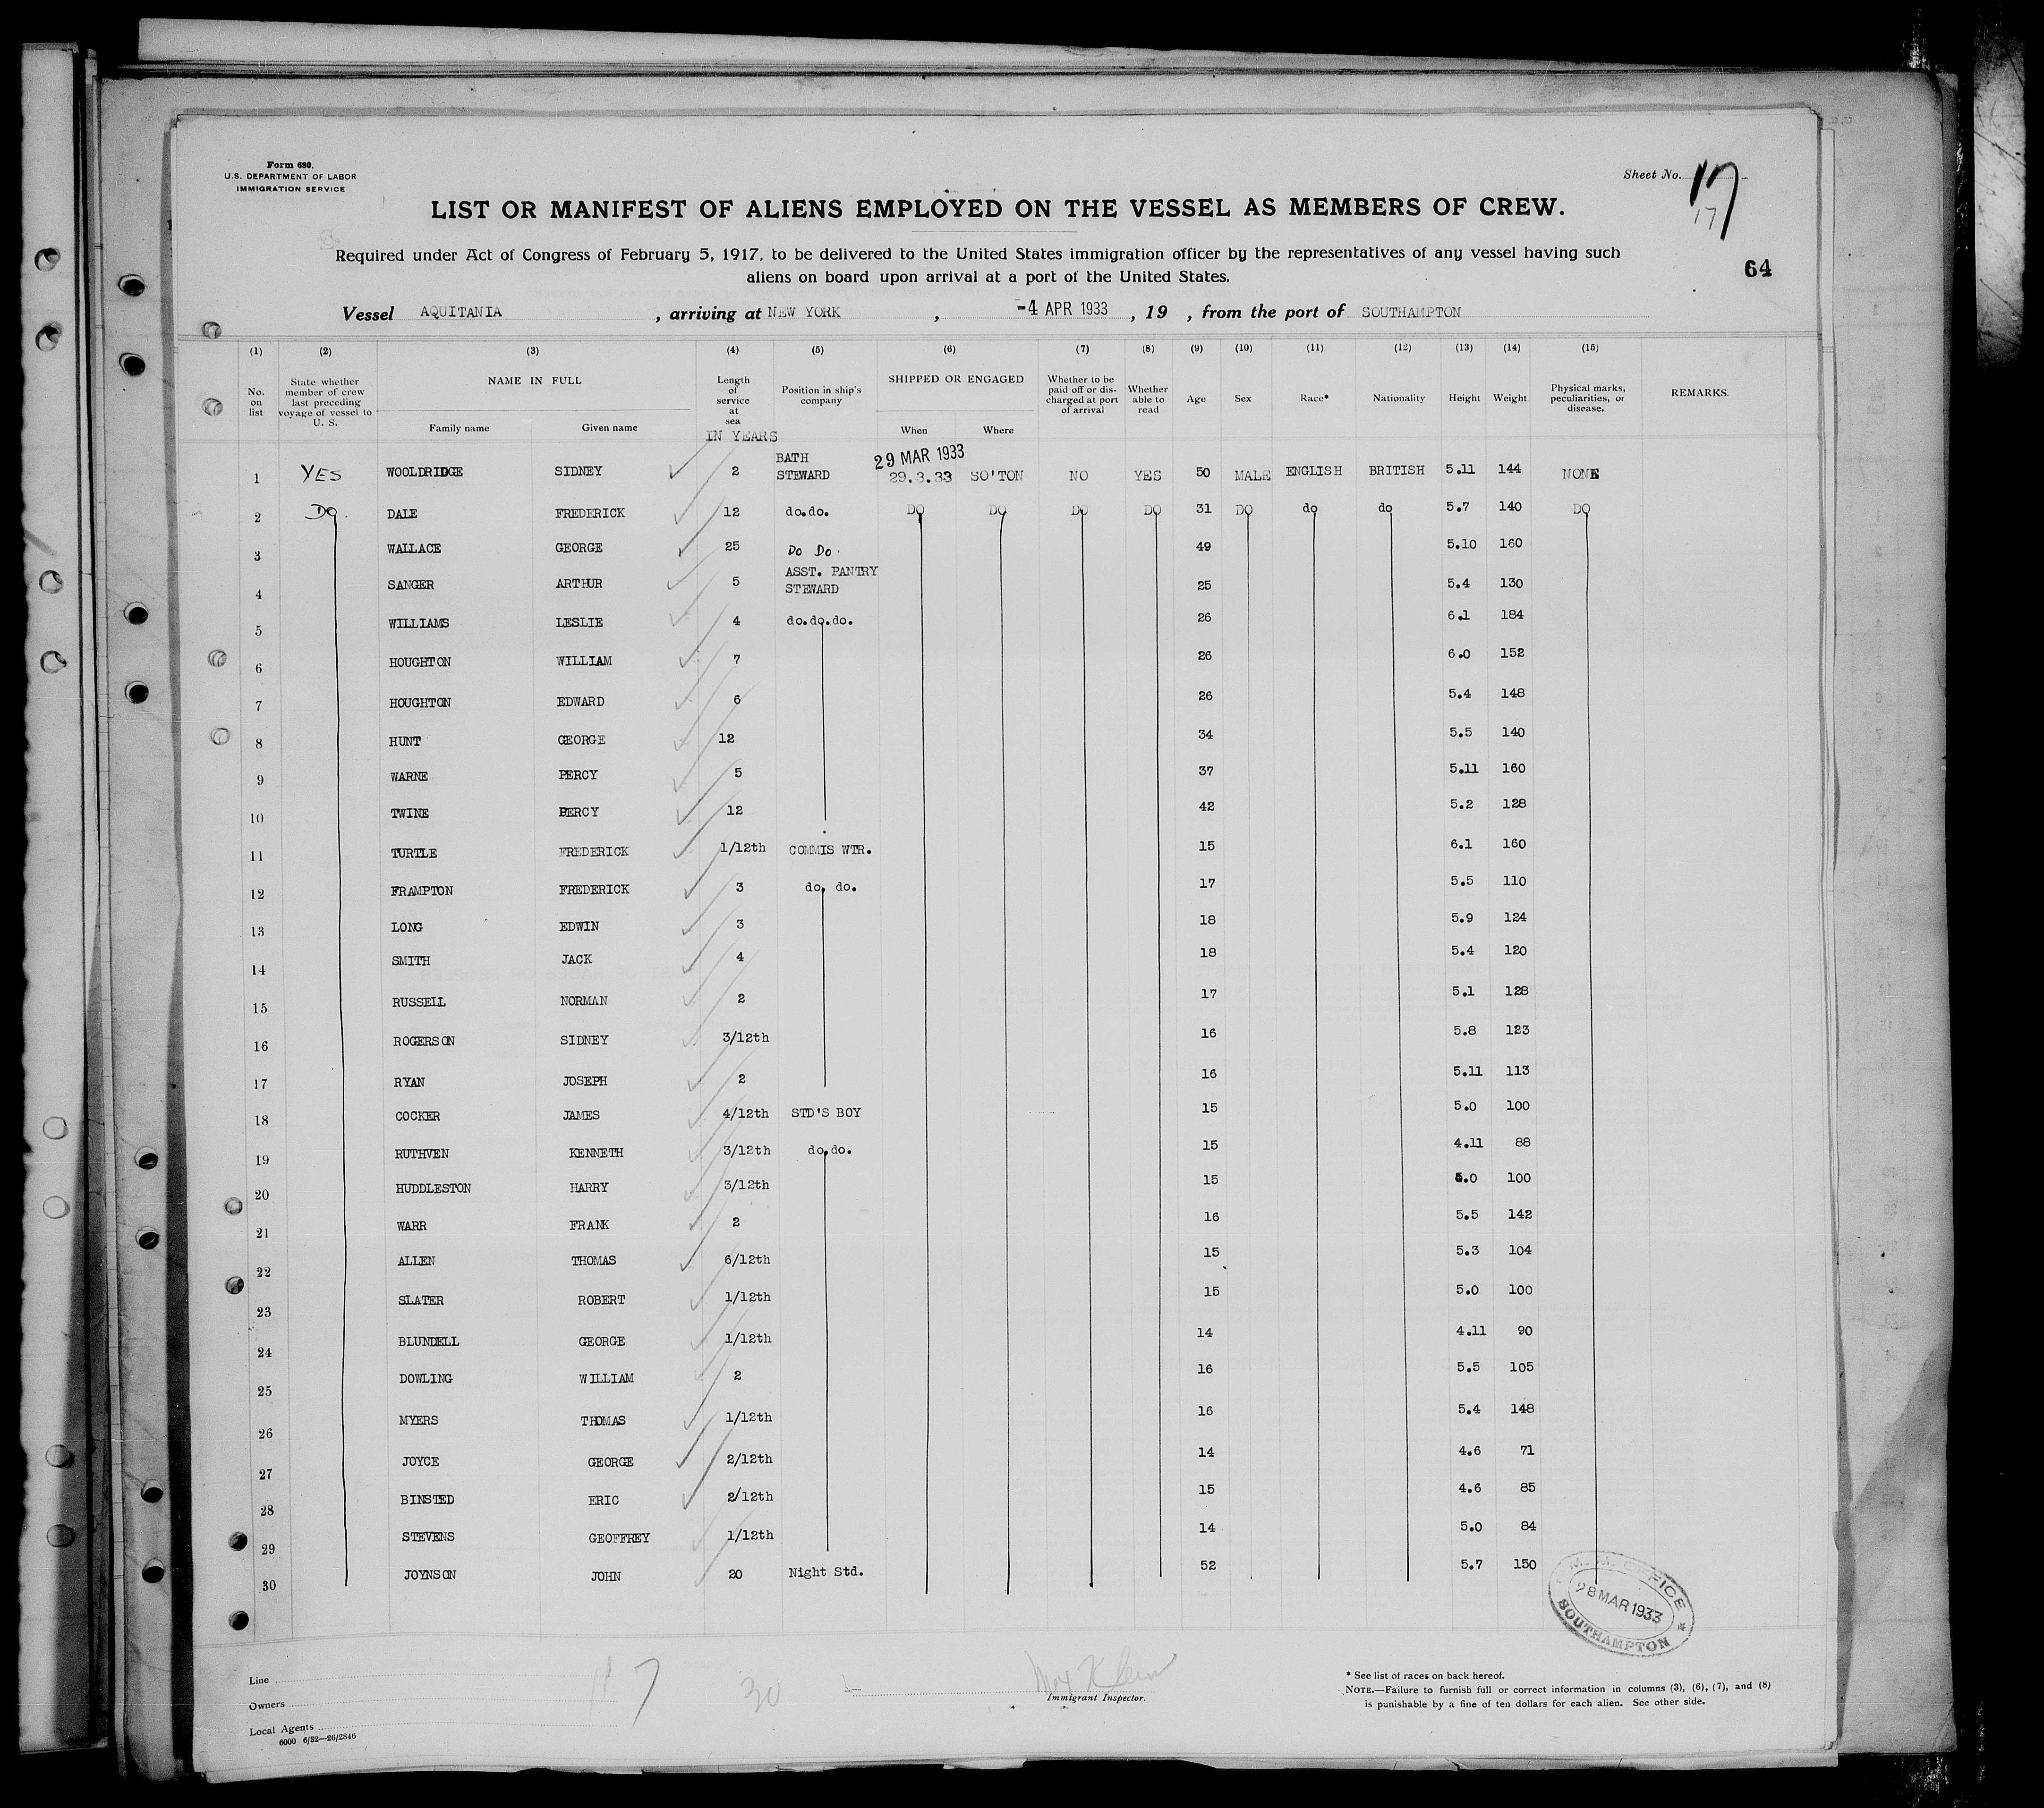 Form 680.
U.S. DEPARTMENT OF LABOR
IMMIGRATION SERVICE
Sheet No. 17
17
LIST OR MANIFEST OF ALIENS EMPLOYED ON THE VESSEL AS MEMBERS OF CREW.
Required under Act of Congress of February 5, 1917, to be delivered to the United States immigration officer by the representatives of any vessel having such
aliens on board upon arrival at a port of the United States.
64
Vessel AQUITANIA , arriving at NEW YORK , -4 APR 1933 , 19 , from the port of SOUTHAMPTON
(1) (2) (3) (4) (5) (6) (7) (8) (9) (10) (11) (12) (13) (14) (15)
No. on list State whether member of crew last preceding voyage of vessel to U. S. NAME IN FULL Family name Given name Length of service at sea IN YEARS Position in ship's company SHIPPED OR ENGAGED When Where Whether to be paid off or discharged at port of arrival Whether able to read Age Sex Race* Nationality Height Weight Physical marks, peculiarities, or disease. REMARKS.
29 MAR 1933
1 YES WOOLDRIDGE SIDNEY 2 BATH STEWARD 29.3.33 SO'TON NO YES 50 MALE ENGLISH BRITISH 5.11 144 NONE
2 DO. DALE FREDERICK 12 do.do. DO DO DO DO 31 DO do do 5.7 140 DO
3 WALLACE GEORGE 25 Do Do. 49 5.10 160
4 SANGER ARTHUR 5 ASST. PANTRY STEWARD 25 5.4 130
5 WILLIAMS LESLIE 4 do.do.do. 26 6.1 184
6 HOUGHTON WILLIAM 7 26 6.0 152
7 HOUGHTON EDWARD 6 26 5.4 148
8 HUNT GEORGE 12 34 5.5 140
9 WARNE PERCY 5 37 5.11 160
10 TWINE PERCY 12 42 5.2 128
11 TURTLE FREDERICK 1/12th COMMIS WTR. 15 6.1 160
12 FRAMPTON FREDERICK 3 do. do. 17 5.5 110
13 LONG EDWIN 3 18 5.9 124
14 SMITH JACK 4 18 5.4 120
15 RUSSELL NORMAN 2 17 5.1 128
16 ROGERSON SIDNEY 3/12th 16 5.8 123
17 RYAN JOSEPH 2 16 5.11 113
18 COCKER JAMES 4/12th STD'S BOY 15 5.0 100
19 RUTHVEN KENNETH 3/12th do.do. 15 4.11 88
20 HUDDLESTON HARRY 3/12th 15 5.0 100
21 WARR FRANK 2 16 5.5 142
22 ALLEN THOMAS 6/12th 15 5.3 104
23 SLATER ROBERT 1/12th 15 5.0 100
24 BLUNDELL GEORGE 1/12th 14 4.11 90
25 DOWLING WILLIAM 2 16 5.5 105
26 MYERS THOMAS 1/12th 16 5.4 148
27 JOYCE GEORGE 2/12th 14 4.6 71
28 BINSTED ERIC 2/12th 15 4.6 85
29 STEVENS GEOFFREY 1/12th 14 5.0 84
30 JOYNSON JOHN 20 Night Std. 52 5.7 150
28 MAR 1933
SOUTHAMPTON
Line
Owners
Local Agents
6000 6/32—26/2846
7
30
Max Klein
Immigrant Inspector.
* See list of races on back hereof.
NOTE.—Failure to furnish full or correct information in columns (3), (6), (7), and (8)
is punishable by a fine of ten dollars for each alien. See other side.